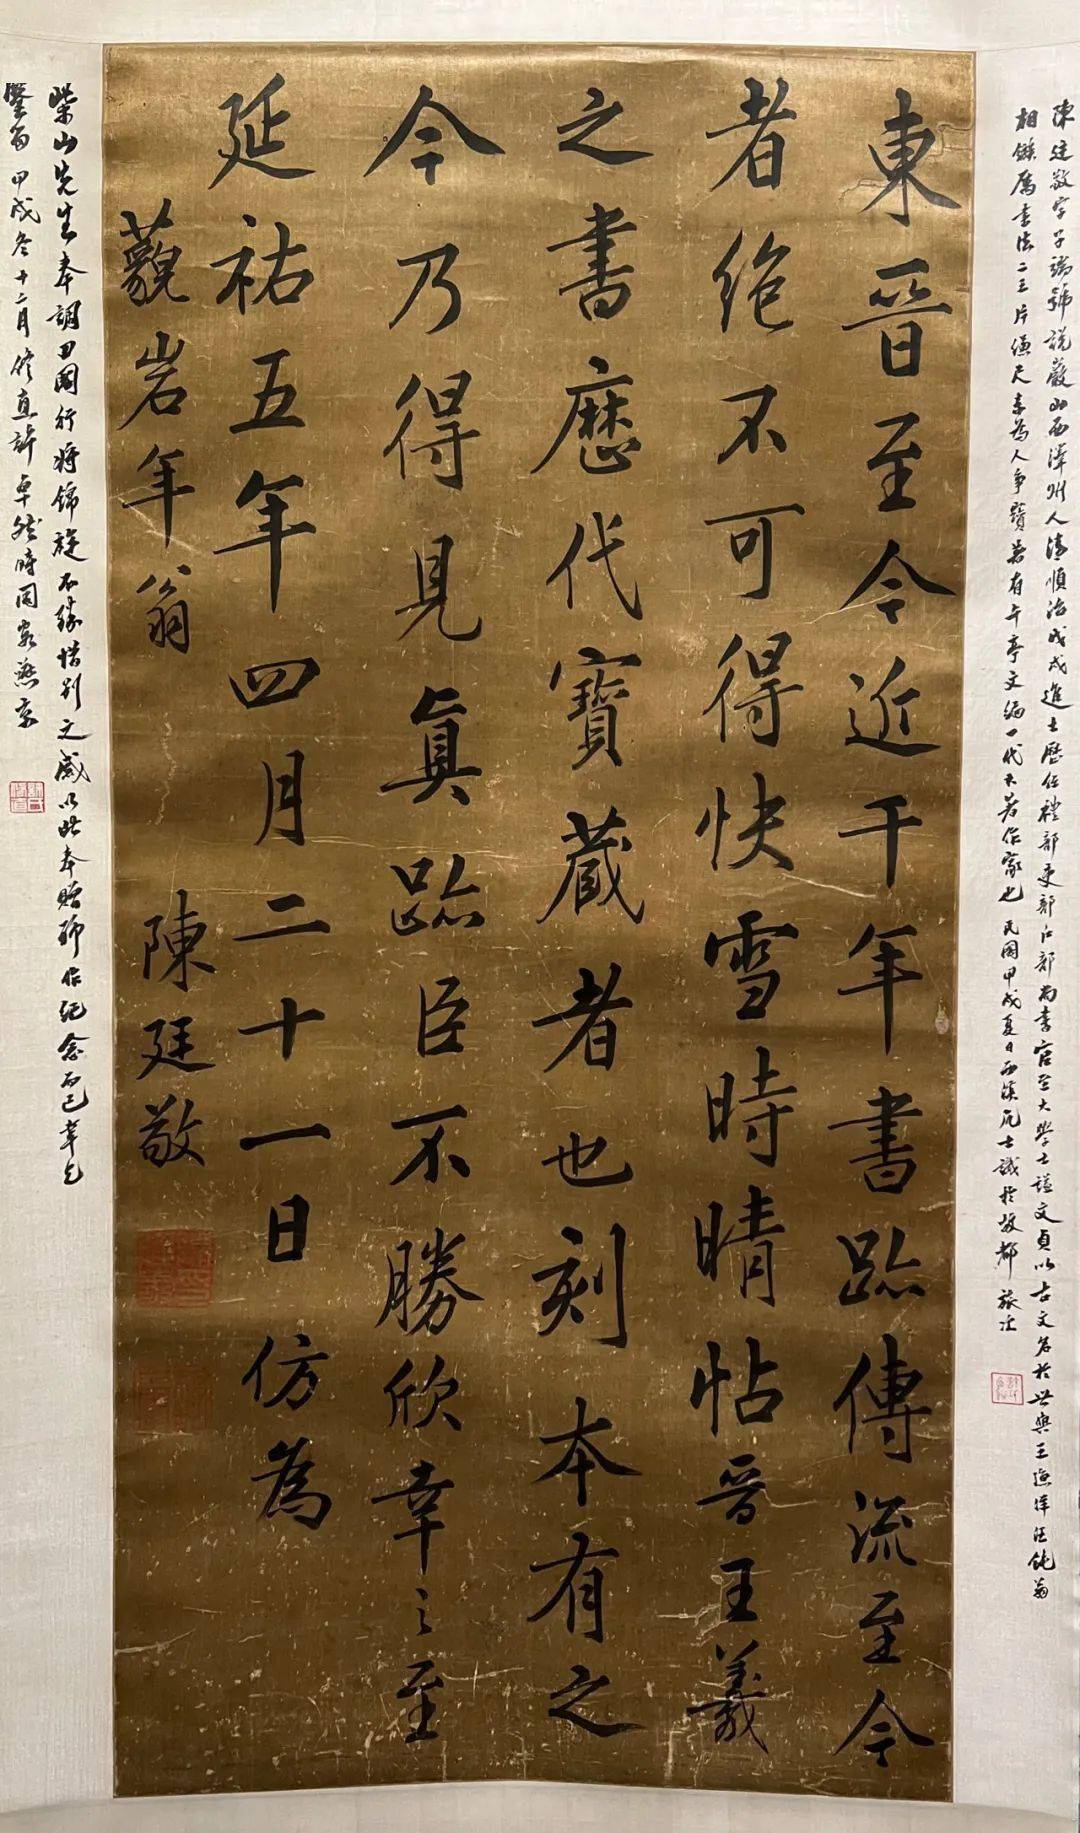 陳廷敬字子端號說巖山西澤州人清順治戊戌進士歷任禮部吏部戶部尚書官至大學士謚文貞以古文名於世與王漁洋汪鈍翁
相鏃厲書法二三片縑尺素為人爭寶著有午亭文編一代大著作家也民國甲戌夏日西溪凡士識於故都旅次
東晉至今近千年書跡傳流至今
者絶不可得快雪時晴帖晉王羲
之書歷代寶藏者也刻本有之
今乃得見真跡臣不勝欣幸之至
延祐五年四月二十一日仿為
藐岩年翁
陳廷敬
柴山先生奉調回國行將錦旋不勝惜別之感以此奉贈聊作紀念而已幸乞
鑒留 甲戌冬十二月 修直許卓然時同客燕京